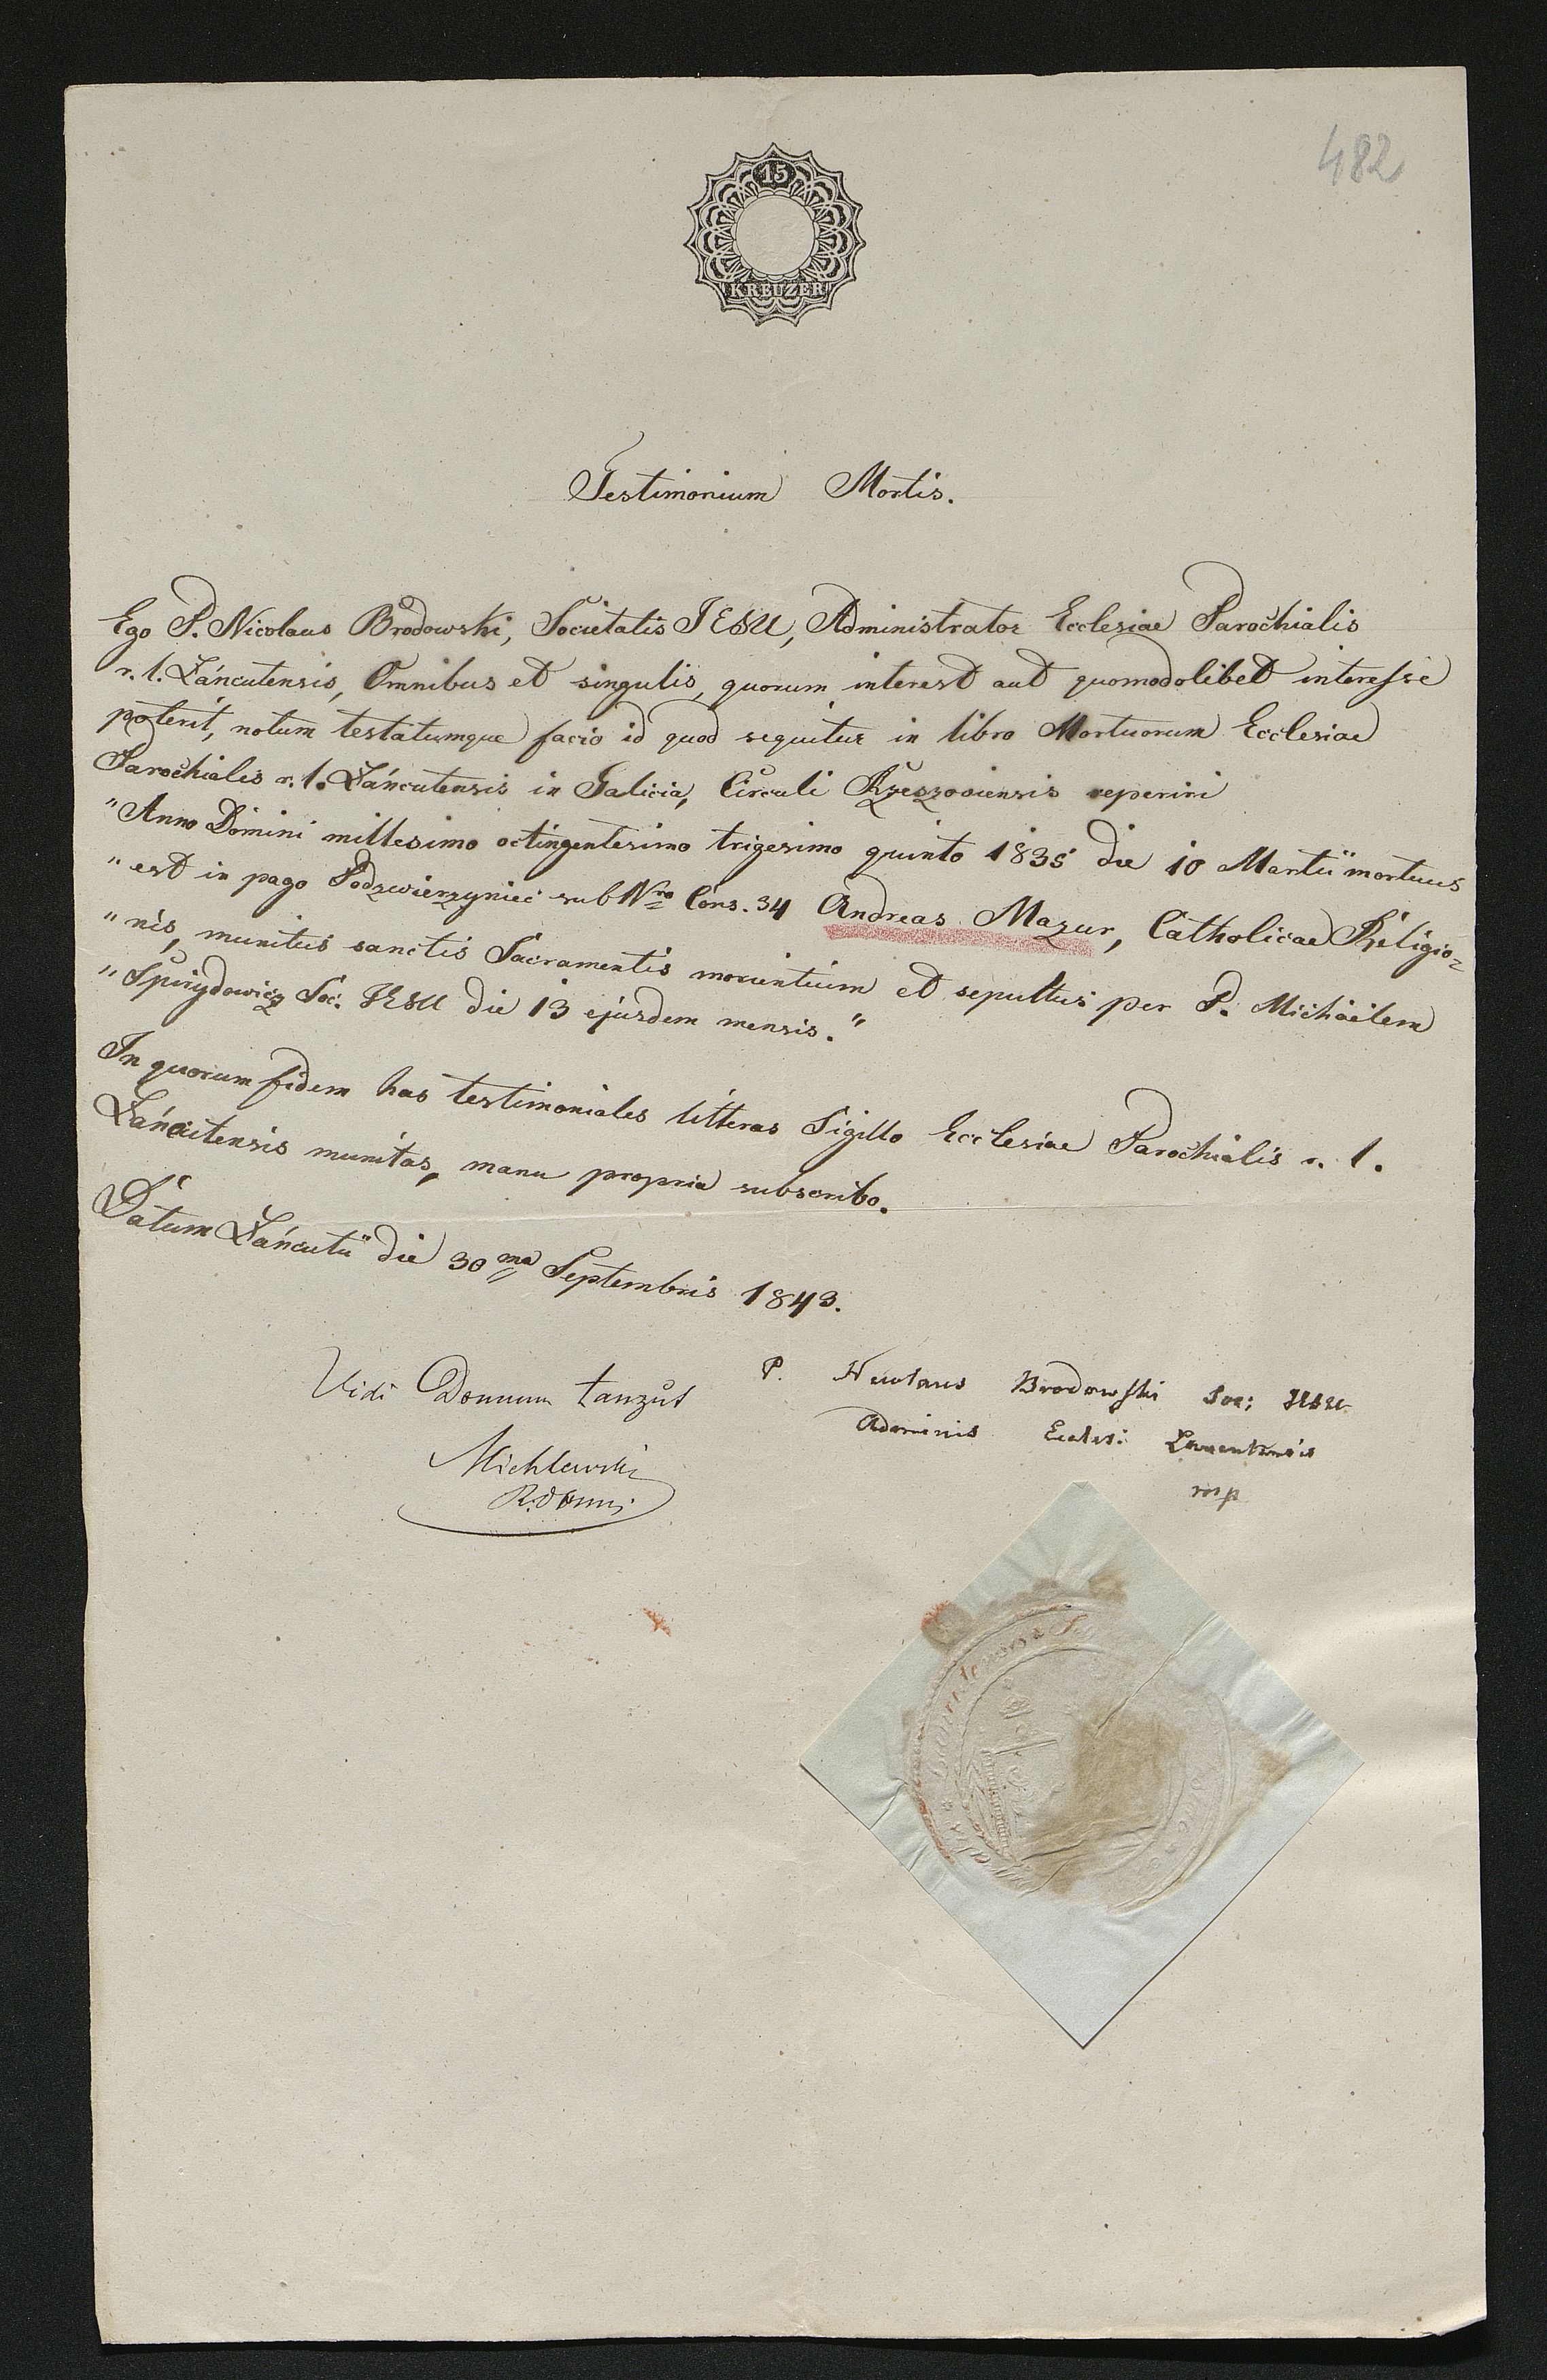 482
15
KREUZER
Testimonium Mortis.
Ego P. Nicolaus Brodowski, Societatis JESU, Administrator Ecclesiae Parochialis
r. l. Łáncutensis, Omnibus et singulis, quorum interest aut quomodolibet interesse
poterit, notum testatumque facio id quod sequitur in libro Mortuorum Ecclesiae
Parochialis r. l. Łáncutensis in Galicia, Circuli Rzeszoviensis reperiri
"Anno Domini millesimo octingentesimo trigesimo quinto 1835 die 10 Martii mortuus
"est in pago Podzwierzyniec sub Nro Cons. 34 Andreas Mazur, Catholicae Religio-
"nis, munitus sanctis Sacramentis morientium et sepultus per P. Michaelem
"Spirydowicz Soc. JESU die 13 ejusdem mensis."
In quorum fidem has testimoniales litteras Sigillo Ecclesiae Parochialis r. l.
Łáncutensis munitas, manu propria subscribo.
Datum Łáncuti die 30ma Septembris 1843.
Vidi Domum Łanzut
Michlewski
P. Nicolaus Brodowski Soc: JESU
Adminis Eccles: Lancutensis
mp